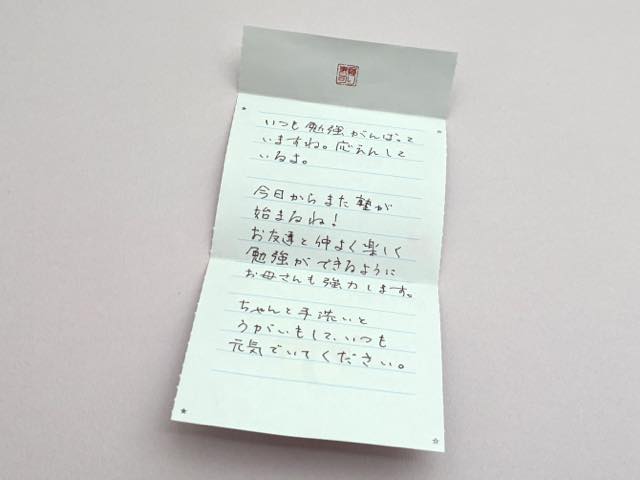 いつも勉強がんばって
いますね。応えんして
いるよ。
今日からまた塾が
始まるね!
お友達と仲よく楽しく
勉強ができるように
お母さんも強力します。
ちゃんと手洗いと
うがいもして、いつも
元気でいてください。